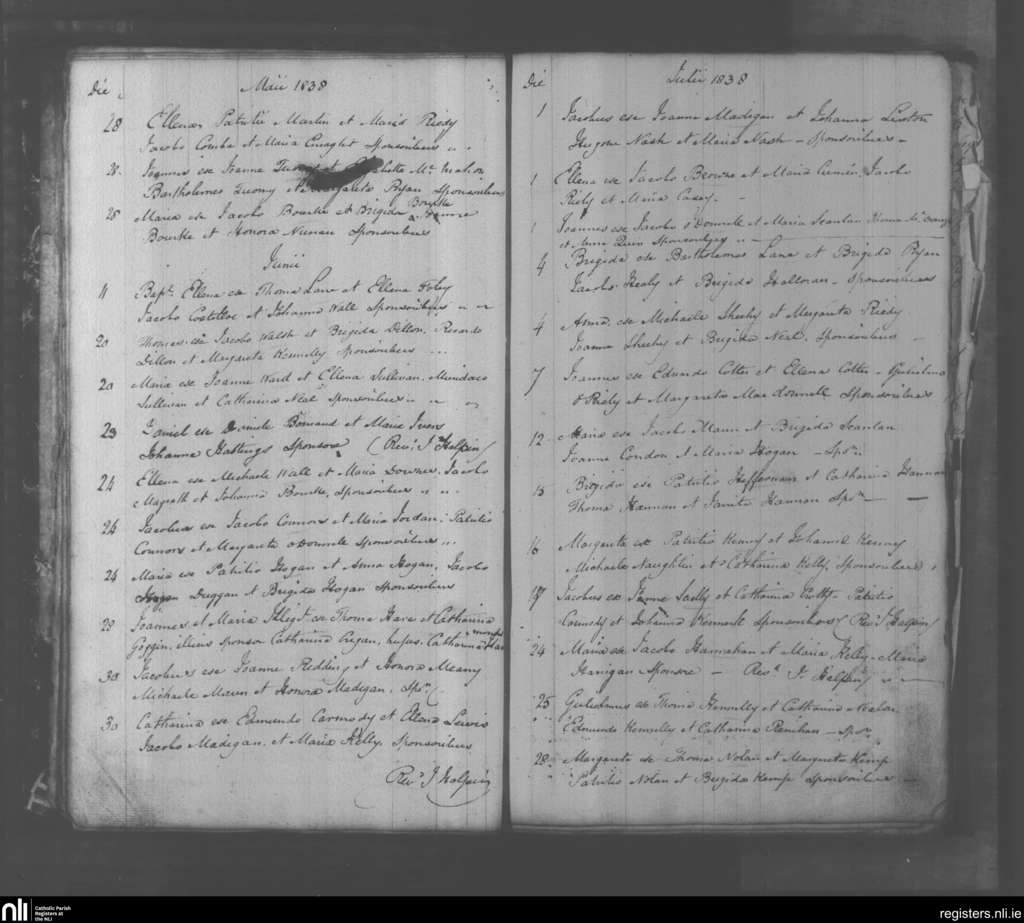 Die Maii 1838
28 Ellena Patritii Martin et Maria Riedy
Jacobo Combe et Maria Sponsoribus
28 Joannes ex Joanne et Mc Mahon
Bartholomeo et Margareta Ryan Sponsoribus
28 Maria ex Jacobo Bourke et Brigida Bourke
Bourke et Honora Nunan Sponsoribus
Junii
11 Bapt. Ellena ex Thoma Lane et Ellena Foley
Jacobo Costelloe et Johanna Wall Sponsoribus
20 Thomas ex Jacobo Walsh et Brigida Dillon, Ricardo
Dillon et Margareta Kennelly Sponsoribus
20 Maria ex Joanne Ward et Ellena Sullivan,
Sullivan et Catharina Neal Sponsoribus
23 Daniel ex Daniele et Maria
Johanna Hastings Sponsore (Revd. J Halpin)
24 Ellena ex Michaele Wall et Maria Downes, Jacobo
Magrath et Johanna Bourke, Sponsoribus
24 Jacobus ex Jacobo Connors et Maria Jordan, Patritio
Connors et Margareta o Donnelle Sponsoribus
24 Maria ex Patritio Hogan et Anna Hogan, Jacobo
Duggan et Brigida Hogan Sponsoribus
29 Joannes et Maria Illegt. ex Thoma Hare et Catharina
Goggin, illius sponsor Catharina Regan, hujus, Catharina
30 Jacobus ex Joanne Redding et Honora Meany
Michaele Maun et Honora Madigan, Spr.
30 Catharina ex Edmundo Carmody et Ellena Lewis
Jacobo Madigan, et Maria Kelly, Sponsoribus
Revd. J Halpin
Die Julii 1838
1 Jacobus ex Joanne Madigan et Johanna
Hugone Nash et Maria Nash – Sponsoribus –
1 Ellena ex Jacobo Browne et Maria Jacobo
Riely et Maria Casey. –
1 Joannes ex Jacobo o Donnelle et Maria Scanlan
et Anna Quin Sponsoribus
4 Brigida ex Bartholomeo Lane et Brigida Ryan
Jacobo Healy et Brigida Halloran – Sponsoribus
4 Anna ex Michaele Sheehy et Margareta Riedy
Joanne Sheehy et Brigida Neal. Sponsoribus –
7 Joannes ex Eduardo Cotter et Ellena Cotter –
o Riely et Margareta Mac donnell Sponsoribus
12 Maria ex Jacobo Maun et Brigida Scanlan
Joanne Condon et Maria Hogan – Spri.
15 Brigida ex Patritio Heffernan et Catharina Hannan
Thoma Hannan et Hannan Spr. –
16 Margareta ex Patritio Kenny et Johanna Kenney
Michaele Naughtin et Catharina Kelly, Sponsoribus
17 Jacobus ex et Catharina Patritio
Cannedy et Johanna Sponsoribus (Revd. J Halpin)
24 Maria ex Jacobo Hannahan et Maria Kelly – Maria
Hanigan Sponsore – Revd. J. Halpin
25 Gulielmus ex Thoma Kennelly et Catharina
Edmundo Kennelly et Catharina – Spr.
28 Margareta ex Thoma Nolan et Margareta Kemp
Patritio Nolan et Brigida Kemp Sponsoribus –
nli Catholic Parish
Registers at
the NLI
registers.nli.ie